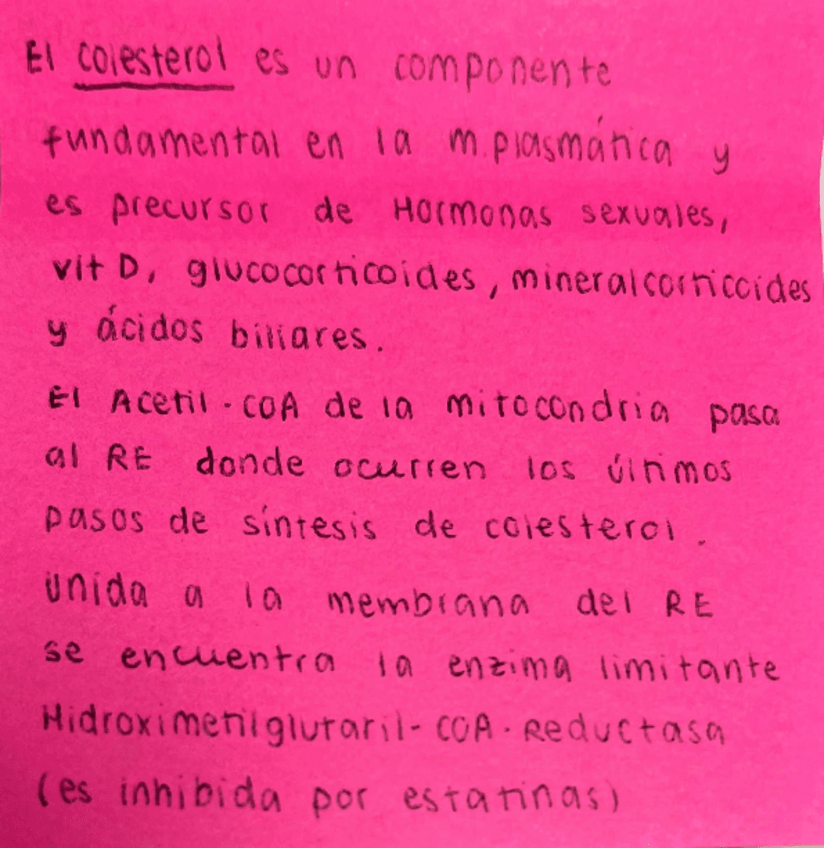 El colesterol es un componente
fundamental en la m.plasmática y
es precursor de Hormonas sexuales,
vit D, glucocorticoides, mineralcorticoides
y ácidos biliares.
El Acetil-COA de la mitocondria pasa
al RE donde ocurren los últimos
pasos de síntesis de colesterol.
Unida a la membrana del RE
se encuentra la enzima limitante
Hidroximetilglutaril-COA-Reductasa
(es inhibida por estatinas)